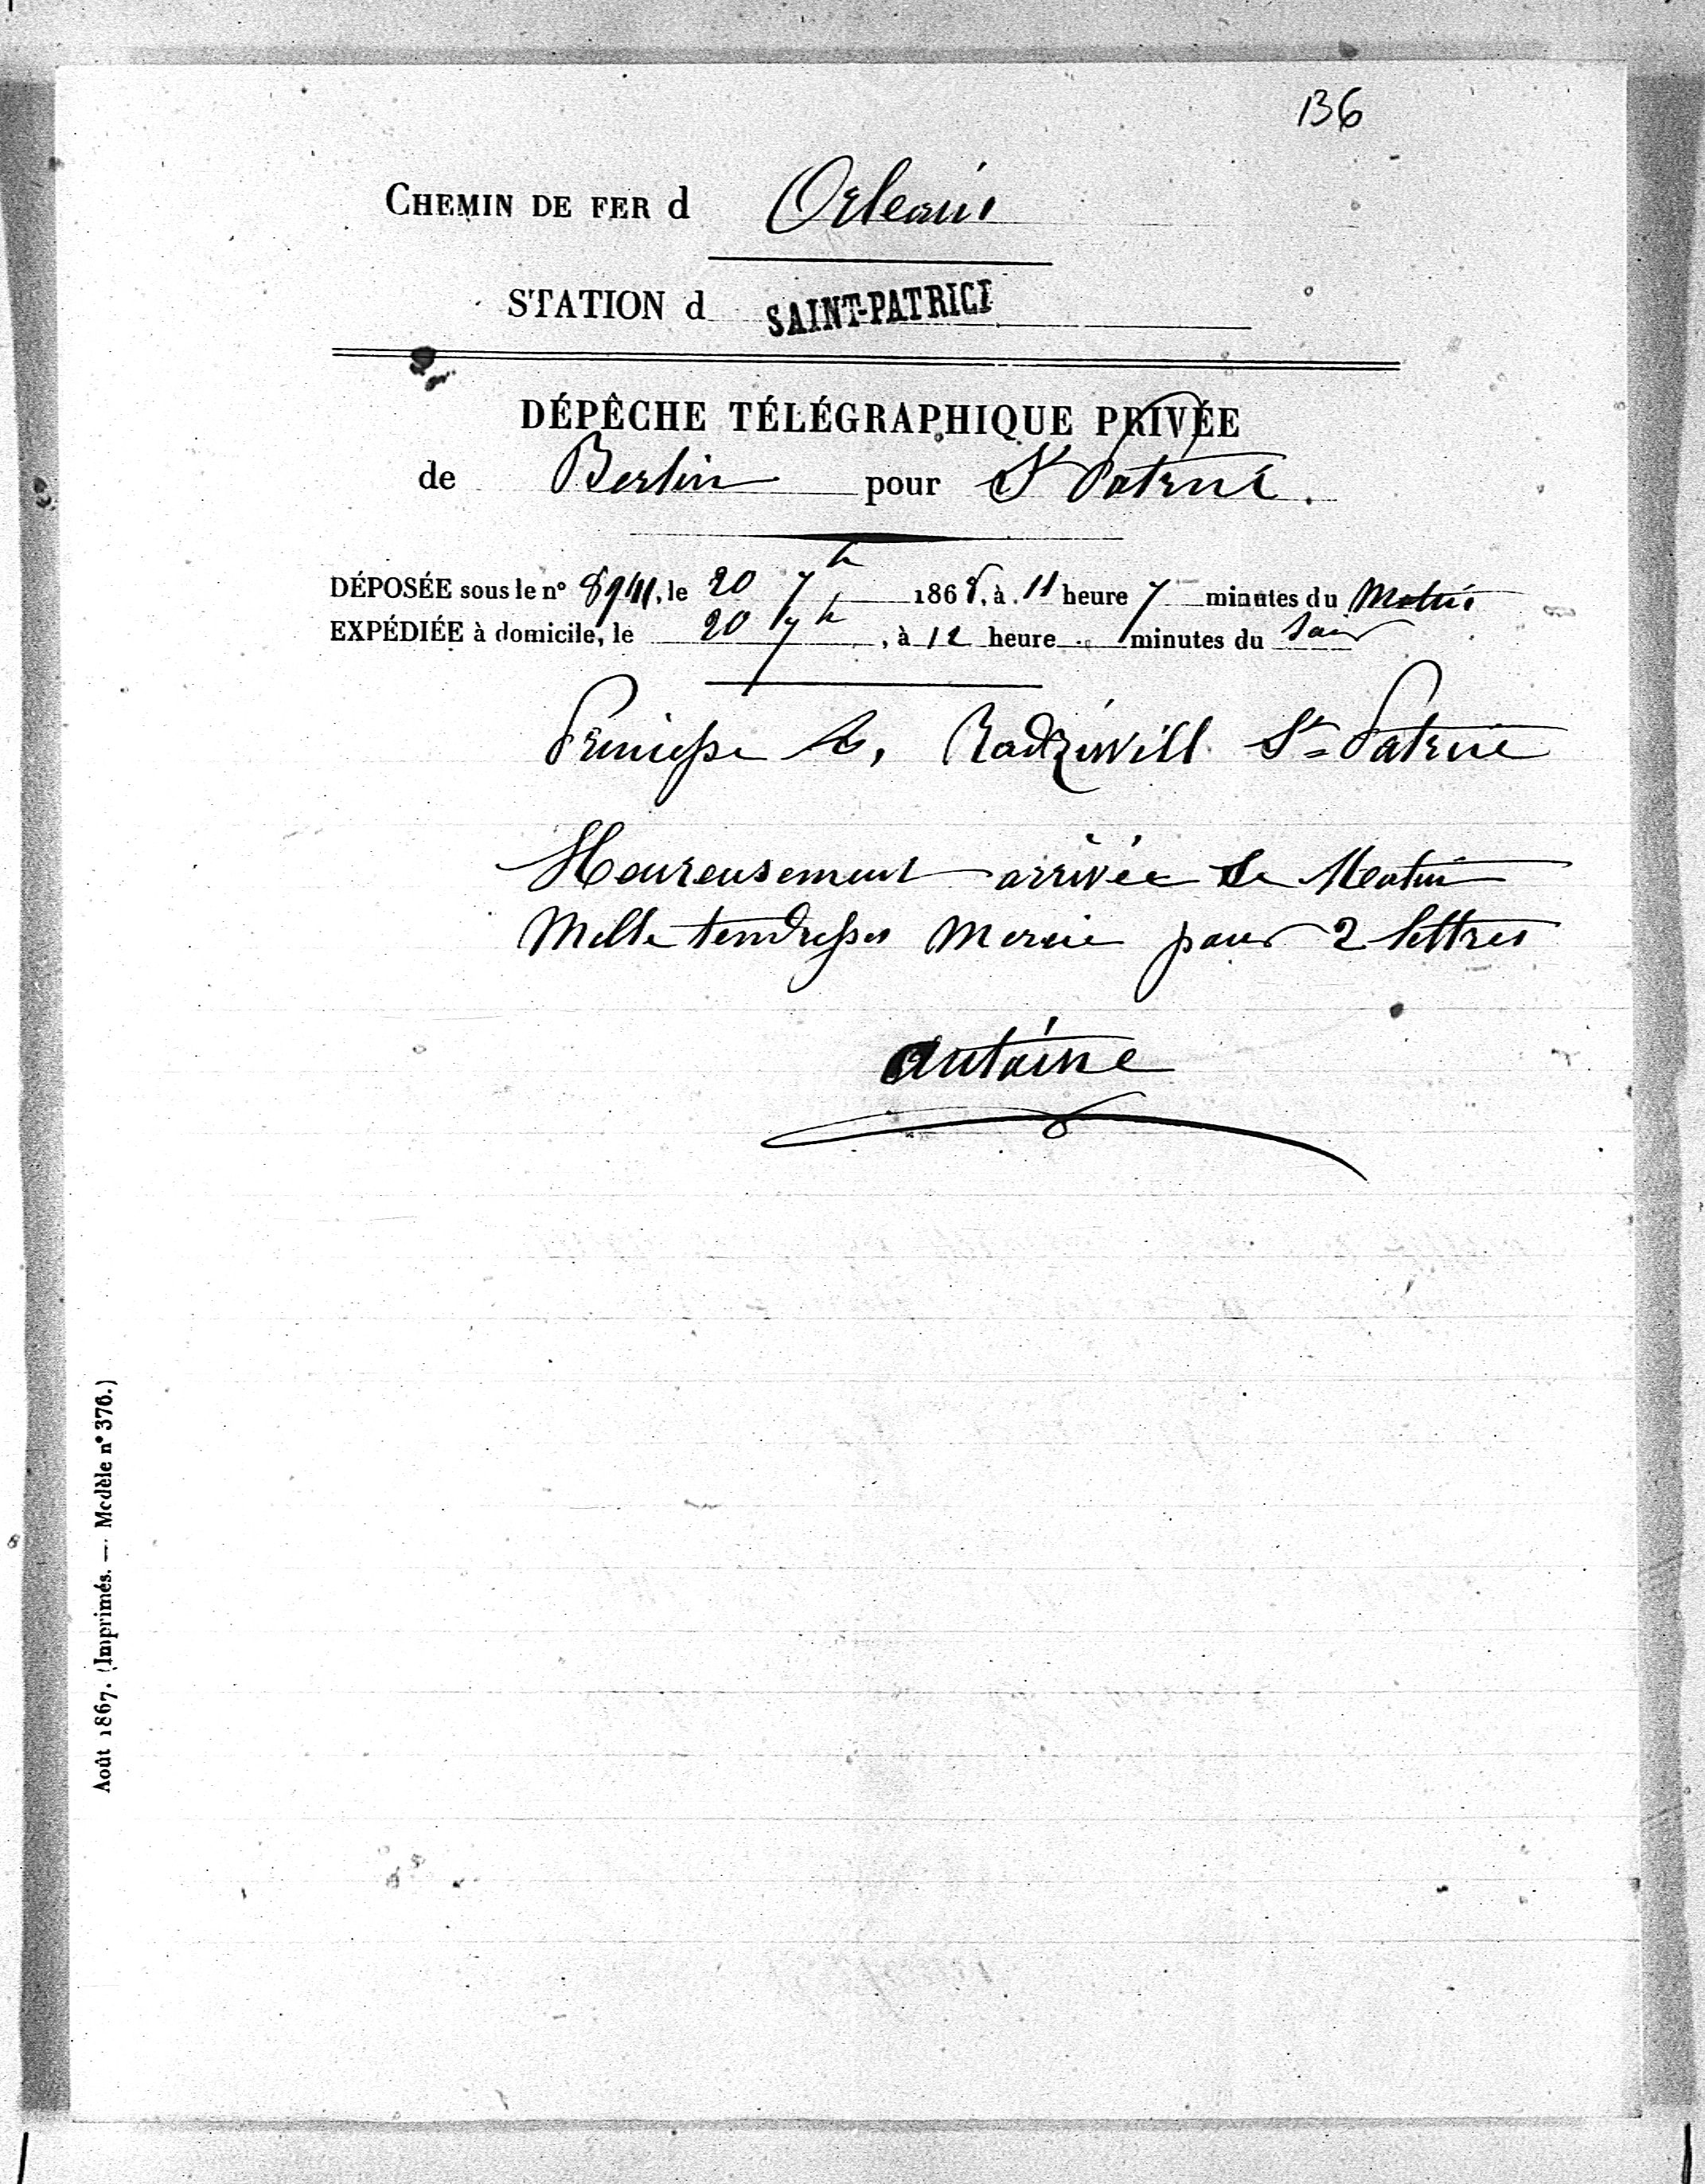 136
CHEMIN DE FER d Orleans
STATION d SAINT-PATRICE
DÉPÊCHE TÉLÉGRAPHIQUE PRIVÉE
de Berlin pour St Patrice.
DÉPOSÉE sous le nº 8941, le 20 7h 1868, à 11 heure 7 minutes du Matin
EXPÉDIÉE à domicile, le 20 7h, à 12 heure minutes du Soir
Princesse A. Radziwill St Patrice
Heureusement arrivée ce Matin
Mille tendresses Mercie pour 2 lettres
Antoine
Août 1867. (Imprimés. — Modèle nº 376.)